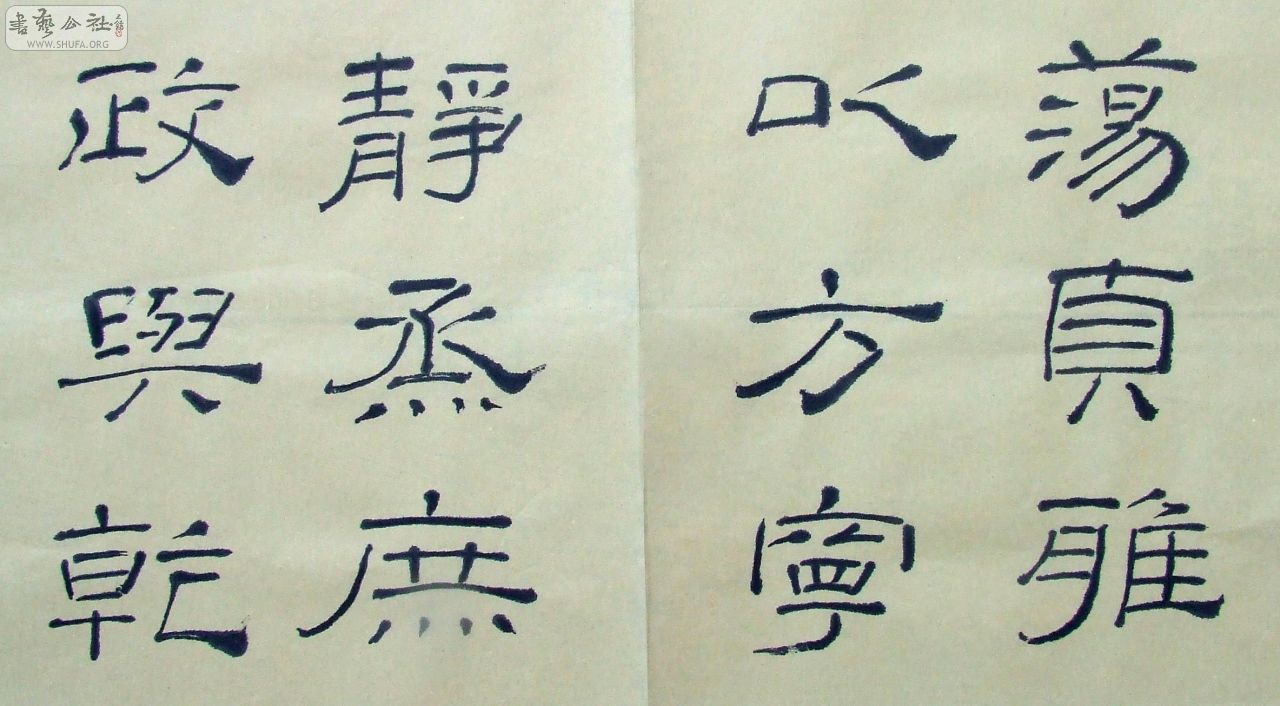 蕩貞雅
以方寧
靜烝庶
政與乾
書藝公社
WWW.SHUFA.ORG